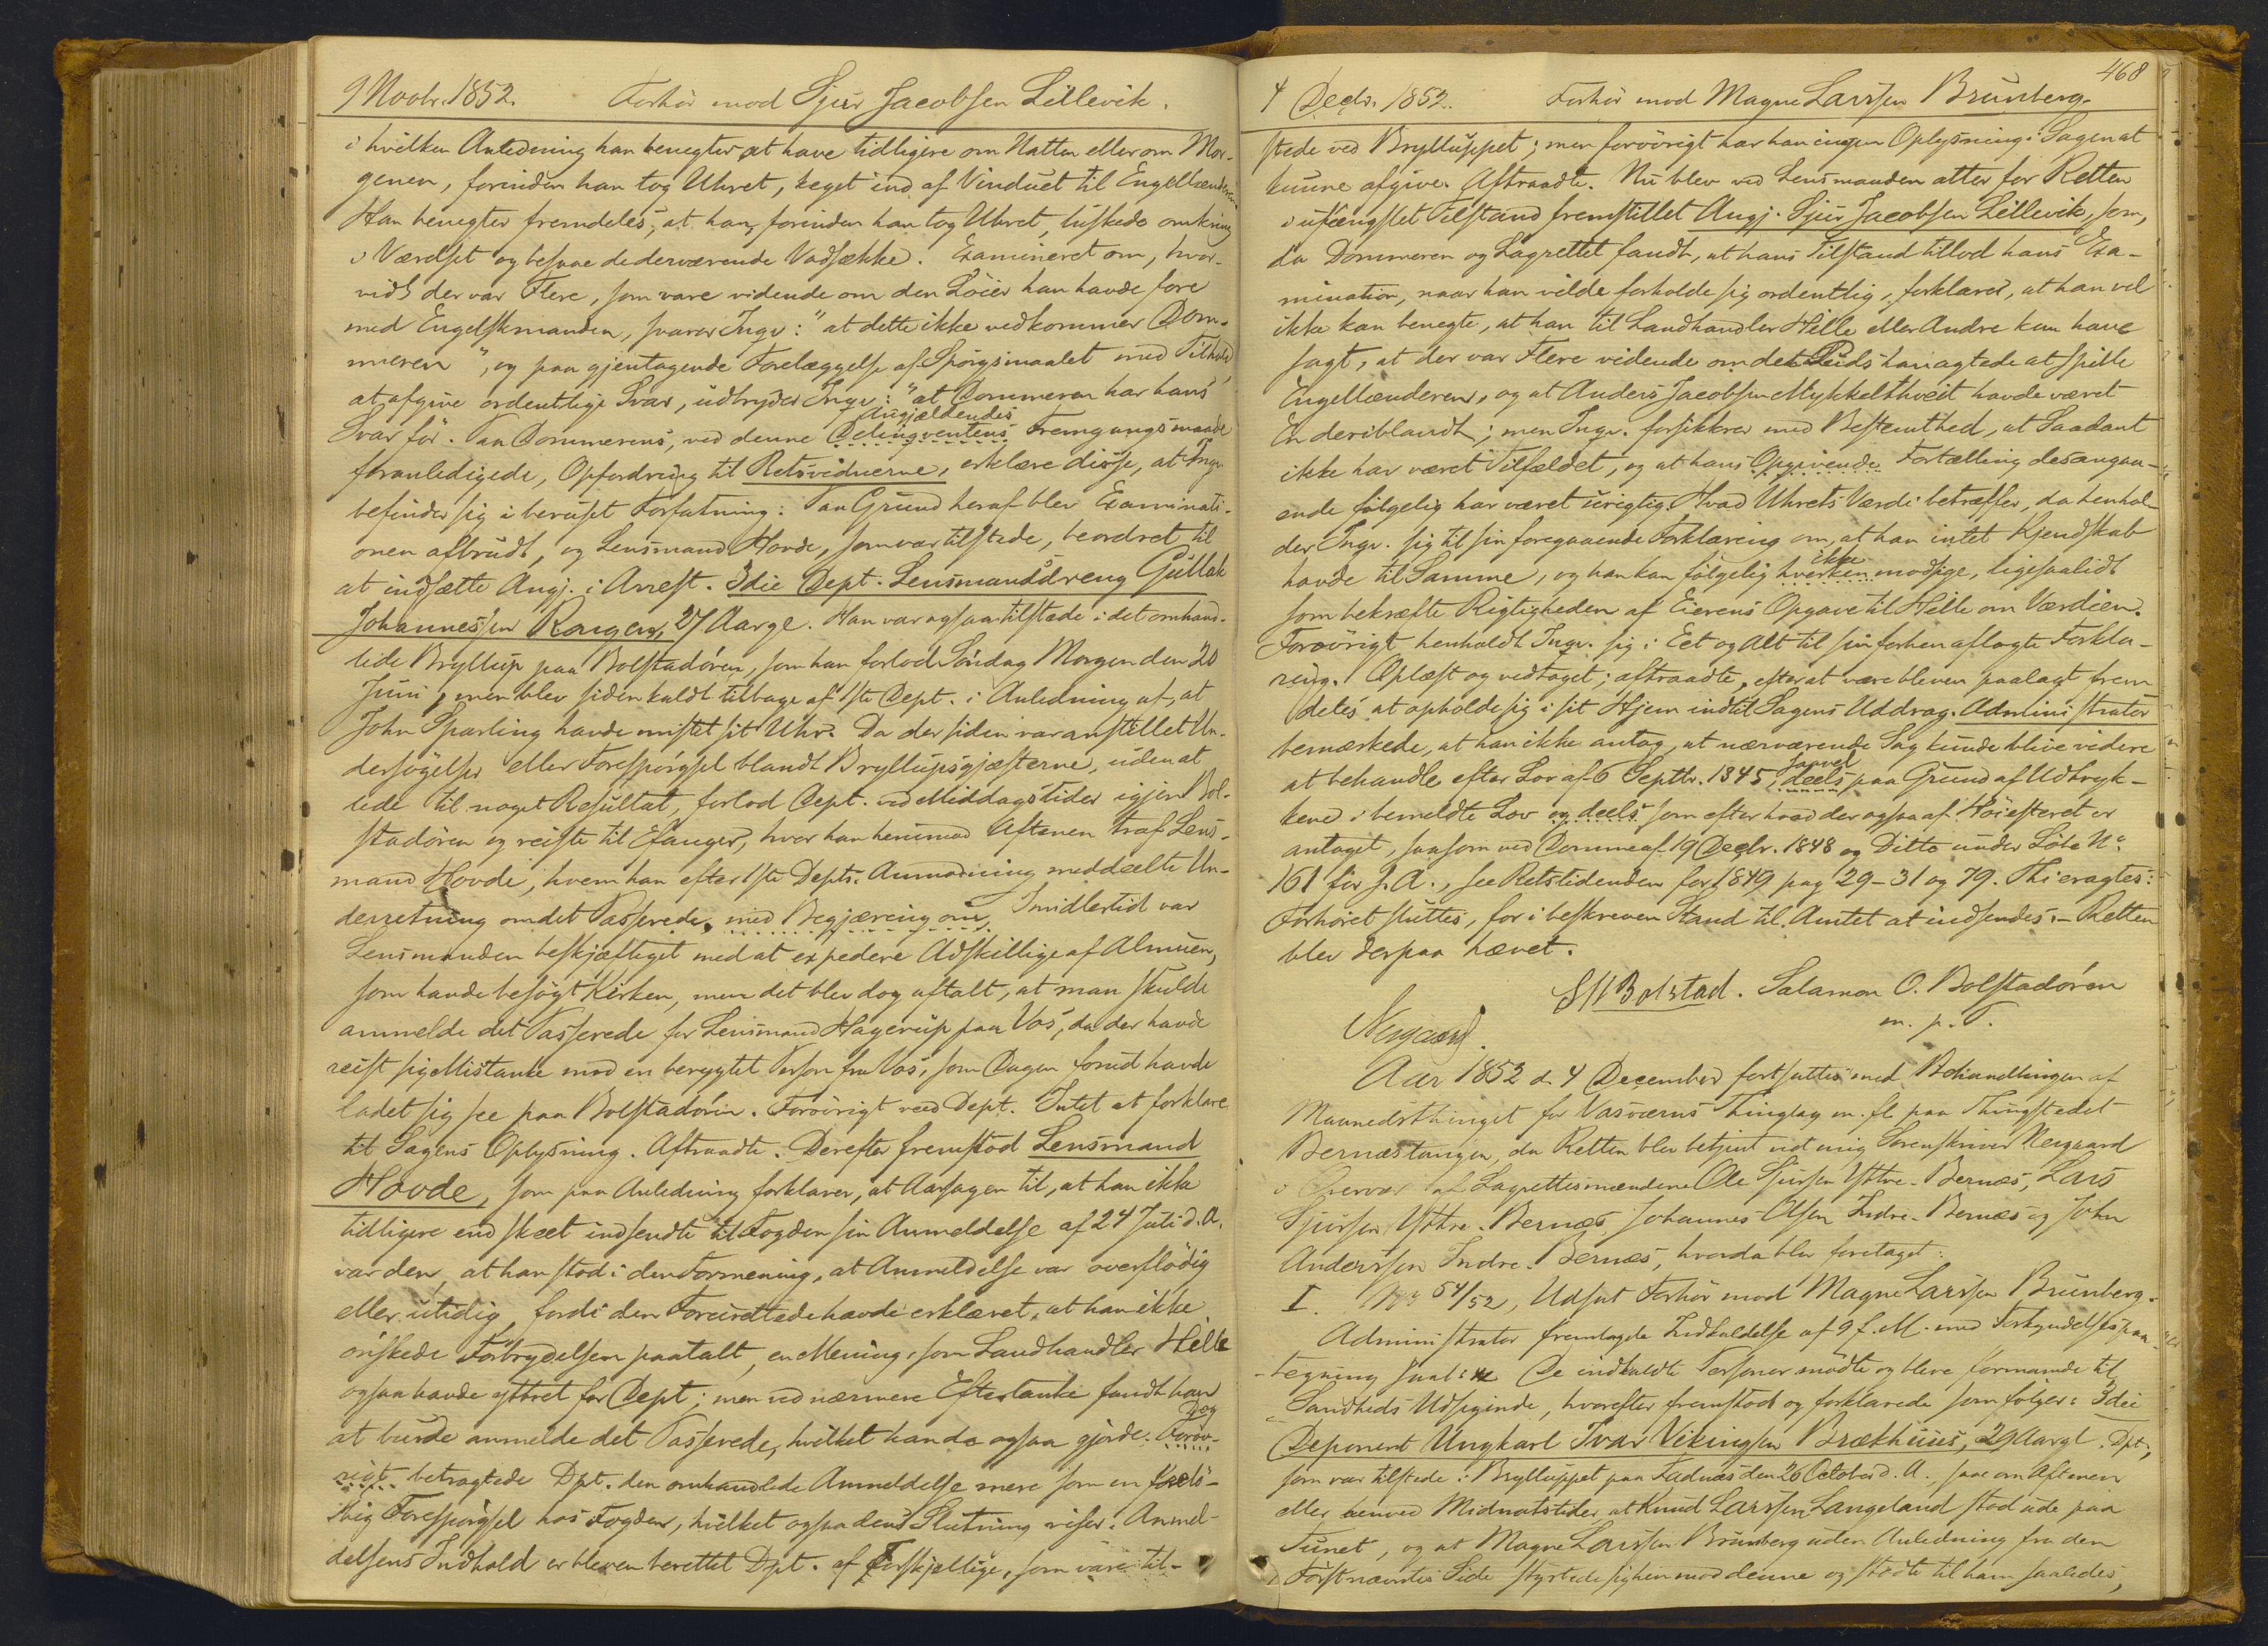 9 Novbr. 1852. Forhør mod Sjur Jacobsen Lillevik.
i hvilken Anledning han benegter at have tidligere om Natten eller om Mor-
genen, forinden han tog Uhret, keget ind af Vinduet til Engellænderen.
Han benegter fremdeles, at han, forinden han tog Uhret, luskede omkring
i Værelset og besaae de derværende Vadsække. Examineret om, hvor-
vidt der var Flere, som vare vidende om den Löier han havde fore
med Engelskmanden, svarer Inqv: "at dette ikke vedkommer Dom-
meren", og paa gjentagende Forelæggelse af Spörgsmaalet med Tilhold
at afgive ordentlige Svar, udbryder Inqv: "at Dommeren har hans
Svar för. Paa Dommerens, ved denne Delinqventens Angjældendes Fremgangsmaade
foranledigede, Opfordring til Retsvidnerne, erklære disse, at Inqv.
befinder sig i beruset Forfatning: Paa Grund heraf blev Examinati-
onen afbrudt, og Lensmand Hovde, som var tilstede, beordret til
at indsætte Angj. i Arrest. 3die Dept. Lensmandsdreng Gullak
Johannessen Rongen, 27 Aar gl. Han var ogsaa tilstede i det omhand-
lede Bryllup paa Bolstadören, som han forlod Söndag Morgen den 20
Juni, men blev siden kaldt tilbage af 1ste Dept. i Anledning af, at
John Sparling havde mistet sit Uhr. Da der siden var anstillet Un-
dersögelser eller Forespörgsel blandt Bryllupsgjæsterne, uden at
lede til noget Resultat, forlod Dept. ved Middagstider igjen Bol-
stadören og reiste til Evanger, hvor han henimod Aftenen traf Lens-
mand Hovde, hvem han efter 1ste Depts. Anmodning meddeelte Un-
derretning om det Passerede, med Begjæring om. Imidlertid var
Lensmanden beskjæftiget med at expedere Adskillige af Almuen,
som havde besögt Kirken, men det blev dog aftalt, at man skulde
anmelde det Passerede for Lensmand Hagerup paa Vos, da der havde
reist sig Mistanke mod en berygtet Person fra Vos, som Dagen forud havde
ladet sig see paa Bolstadören. Forövrigt veed Dept. Intet at forklare
til Sagens Oplysning. Aftraadte. Derefter fremstod Lensmand
Hovde, som paa Anledning forklarer, at Aarsagen til, at han ikke
tidligere end skeet indsendte til Fogden sin Anmeldelse af 24 Juli d. A.
var den, at han stod i den Formening, at Anmeldelse var overflödig
eller utidig fordi den Forurettede havde erklæret, at han ikke
önskede Forbrydelsen paatalt, en Mening, som Landhandler Hille
ogsaa havde yttret for Dept; men ved nærmere Eftertanke fandt han
at burde anmelde det Passerede, hvilket han da ogsaa gjorde. Foröv- Dog
rigt betragtede Dpt. den omhandlede Anmeldelse mere som en
Forespörgsel hos Fogden, hvilket ogsaa dens Slutning viser. Anmel-
delsens Indhold er bleven berettet Dpt. af Forskjellige, som vare til-
468
4 Decbr. 1852. Forhör mod Magne Larssen Brunberg.
stede ved Brylluppet; men forövrigt har han ingen Oplysning i Sagen at
kunne afgive. Aftraadte. Nu blev ved Lensmanden atter for Retten
i ufængslet Tilstand fremstillet Angj. Sjur Jacobsen Lillevik, som,
da Dommeren og Lagrettet fandt, at hans Tilstand tillod hans Exa-
mination, naar han vilde forholde sig ordentlig, forklarer, at han vel
ikke kan benegte, at han til Landhandler Hille eller Andre kan have
sagt, at der var Flere vidende om det Puds han agtede at spille
Engellænderen, og at Anders Jacobsen Mykkelthveit havde været
En deriblandt; men Inqv. forsikkrer med Bestemthed, at Saadant
ikke har været Tilfældet, og at hans Opgivende Fortælling desangaa-
ende fölgelig har været urigtig. Hvad Uhrets Værdi betræffer, da henhol-
der Inqv. sig til sin foregaaende Forklaring om, at han intet Kjendskab
havde til Samme, og han kan fölgelig hverken ikke modsige, ligesaalidt
som bekræfte Rigtigheden af Eierens Opgave til Hille om Værdien.
Forövrigt henholdt Inqv. sig i Eet og Alt til sin forhen aflagte Forkla-
ring. Oplæst og vedtaget; aftraadte, efterat være bleven paalagt frem-
deles at opholde sig i sit Hjem indtil Sagens Uddrag. Administrator
bemærkede, at han ikke antog, at nærværende Sag kunde blive videre
at behandle efter Lov af 6 Septbr. 1845, deels saavel paa Grund af Udtryk-
kene i bemeldte Lov og deels som efter hvad der ogsaa af Höiesteret er
antaget, saasom ved Domme af 19 Decbr. 1848 og Ditto under Löbe No
161 for f. A., see Retstidenden for 1849 pag 29-31 og 79. Thi eragtes:
Forhöret sluttes, for i beskreven Stand til Amtet at indsendes. - Retten
blev derpaa hævet.
Bolstad. Salamon O. Bolstadören
m. p. P.
Nergaard.
Aar 1852 d. 4 December fortsattes med Behandlingen af
Maanedsthinget for Vasværns Thinglag m. fl. paa Thingstedet
Bernæstangen, da Retten blev betjent ved mig Sorenskriver Nergaard
i Overvær af Lagrettesmændene Ole Sjursen Yttre-Bernæs, Lars
Sjursen Yttre-Bernæs Johannes Olsen Indre-Bernæs og John
Anderssen Indre-Bernæs, hvorda blev foretaget:
I. No 54/52, Udsat Forhör mod Magne Larssen Brunberg.
Administrator fremlagde Indkaldelse af 9 f. M. med Forkyndelsespaa-
tegning saal: De indkaldte Personer mödte og bleve formanede til
Sandheds Udsigende, hvorefter fremstod og forklarede som fölger: 3die
Deponent Ungkarl Ivar Vikingsen Brækhuus, 29 Aar gl. Dpt.,
som var tilstede i Brylluppet paa Fadnæs den 26 October d. A., saae om Aftenen
eller henved Midnatstider, at Knud Larssen Langeland stod ude paa
Tunet, og at Magne Larssen Brunberg uden Anledning fra den
Förstnævntes Side styrtede sig hen mod denne og stödte til ham saaledes,